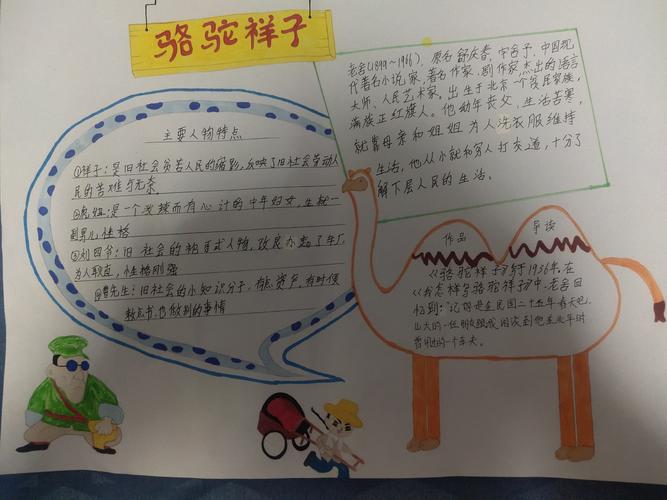 骆驼祥子
老舍(1899~1966),原名舒庆春,字舍予,中国现
代著名小说家,著名作家,剧作家,杰出的语言
大师、人民艺术家,出生于北京一个贫民家庭,
满族正红旗人。他幼年丧父,生活苦寒,
就靠母亲和姐姐为人洗衣服维持
生活,他从小就和穷人打交道,十分了
解下层人民的生活。
主要人物特点
①祥子:是旧社会劳苦人民的缩影,反映了旧社会劳动人
民的苦难与无奈
②虎妞:是一个泼辣而有心计的中年妇女,生就一
副男儿性格
③刘四爷:旧社会的袍哥式人物,改良办起了车厂
为人耿直,性格刚强
④曹先生:旧社会的小知识分子,有点资产,有时候
教点书,也做别的事情
作品 导读
《骆驼祥子》写于1936年,在
《我怎样写骆驼祥子》中,老舍回
忆到:"记得是在民国二十五年春天吧,
山大的一位朋友跟我闲谈到他在北平时
曾用过的一个车夫。